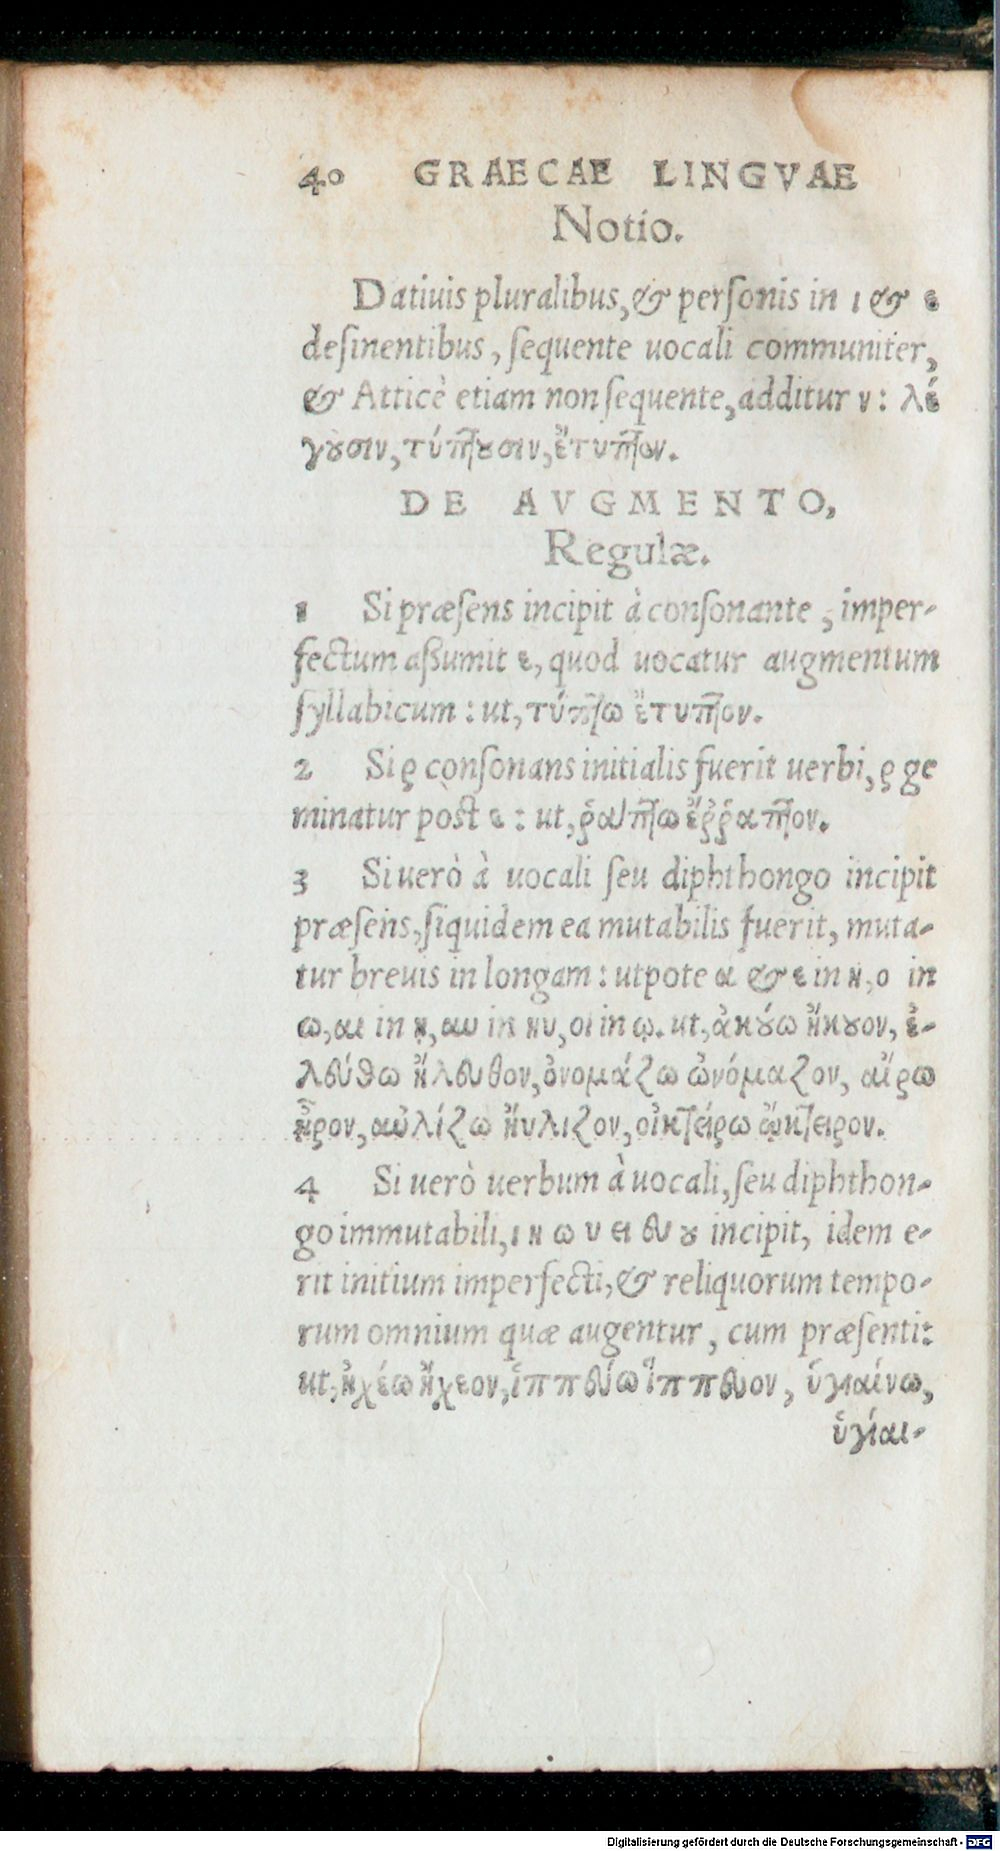 40 GRAECAE LINGVAE
Notio.
Datiuis pluralibus, & perſonis in ι & ε
deſinentibus, ſequente uocali communiter,
& Atticè etiam non ſequente, additur ν: λέ
γουσιν, τύπτουσιν, ἔτυπτεν.
DE AVGMENTO,
Regulæ.
1 Si præſens incipit à conſonante, imper-
fectum aſſumit ε, quod uocatur augmentum
ſyllabicum: ut, τύπτω ἔτυπτον.
2 Si ρ conſonans initialis fuerit uerbi, ρ ge
minatur poſt ε: ut, ῥάπτω ἔῤῥαπτον.
3 Si uerò à uocali ſeu diphthongo incipit
præſens, ſiquidem ea mutabilis fuerit, muta-
tur breuis in longam: utpote α & ε in η, ο in
ω, αι in ῃ, αυ in ηυ, οι in ῳ. ut, ἀκούω ἤκουον, ἐ-
λεύθω ἤλευθον, ὀνομάζω ὠνόμαζον, αἴρω
ᾖρον, αὐλίζω ἤυλιζον, οἰκτείρω ᾤκτειρον.
4 Si uerò uerbum à uocali, ſeu diphthon-
go immutabili, ι η ω υ ει ευ ου incipit, idem e-
rit initium imperfecti, & reliquorum tempo-
rum omnium quæ augentur, cum præſenti:
ut, ἠχέω ἤχεον, ἱππεύω ἵππευον, ὑγιαίνω,
ὑγίαι-
Digitalisierung gefördert durch die Deutsche Forschungsgemeinschaft - DFG